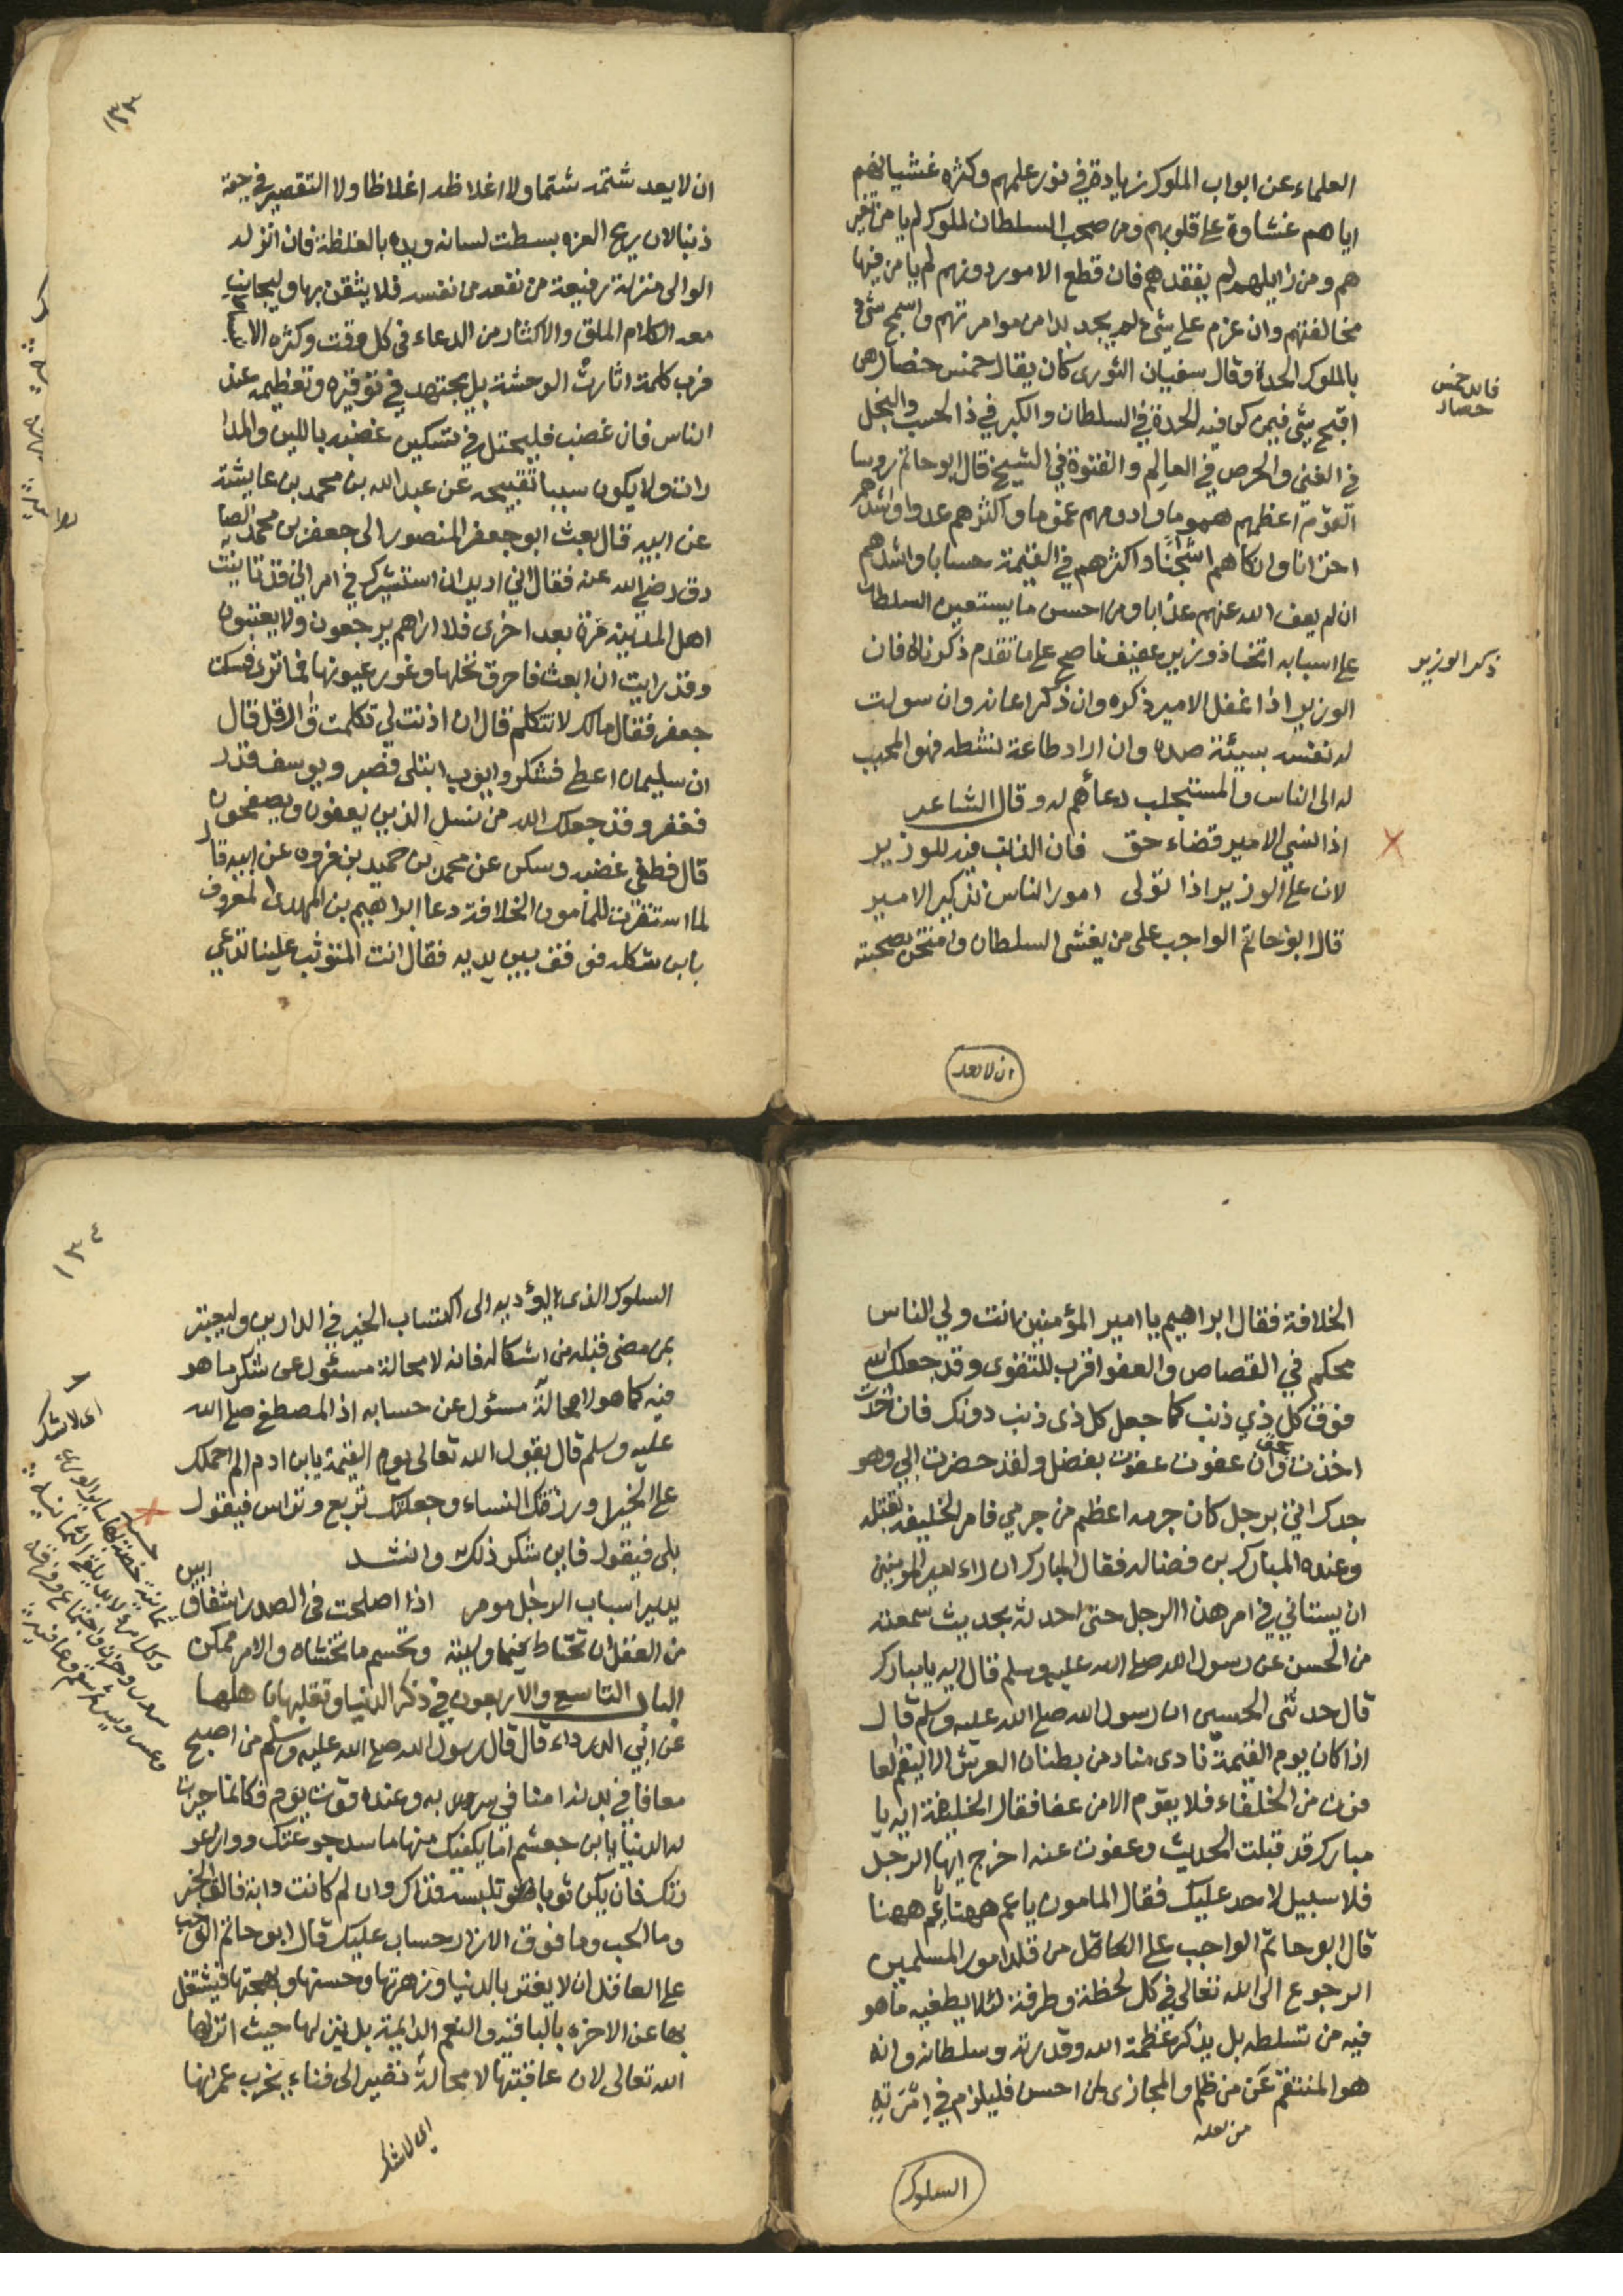 العلماء عن ابواب الملوك زيادة في نور علمهم وكثرة غشيانهم
اياهم غشاوة على قلوبهم ومن صحب السلطان الملوك لم يامن تغير
هم ومن زايلهم لم يفقدهم فان قطع الامور دونهم لم يامن فيها
مخالفتهم وان عزم على شيء لم يجد بدا من موامرتهم واسمج شيء
بالملوك الحدة وقال سفيان الثوري كان يقال خمس خصال هن
اقبح شيء فيمن كن فيه الحدة في السلطان والكبر في ذا الحسب والبخل
في الغني والحرص في العالم والفتوة في الشيخ قال ابو حاتم روسا
القوم اعظمهم هموما وادومهم غموما واكثرهم عدوا واشدهم
احزانا وانكاهم اشجانا واكثرهم في القيمة حسابا واشدهم
ان لم يعف الله عنهم عذابا ومن احسن ما يستعين السلطان
على اسبابه اتخاذ وزير عفيف ناصح على ما تقدم ذكرنا له فان
الوزير اذا غفل الامير ذكره وان ذكر اعانه وان سولت
له نفسه بسيئة صده وان اراد طاعة نشطه فهو المحبب
له الى الناس والمستجلب دعأهم له وقال الشاعر
اذا نسي الامير قضاء حق فان الذنب فيه للوزير
لان على الوزير اذا تولى امور الناس تذكير الامير
قال ابو حاتم الواجب على من يغشى السلطان وامتحن بصحبته
فايده خمس
خصال
ذكر الوزير
ان لا يعد
١٣٣
ان لا يعد شتمه شتما ولا اغلاظه اغلاظا ولا التقصير في حقه
ذنبا لان ريح العزه بسطت لسانه ويده بالغلظة فان انزله
الوالي منزلة رفيعة من نفسه فلا يثقن بها وليجانب
معه الكلام الملق والاكثار من الدعاء في كل وقت وكثره
فرب كلمة اثارت الوحشة بل يجتهد في توقيره وتعظيمه عند
الناس فان غضب فليحتل في تسكين غضبه باللين والمدا
رات ولا يكون سببا تقبيحه عن عبد الله بن محمد بن عايشة
عن ابيه قال بعث ابو جعفر المنصور الى جعفر بن محمد الصا
دق رضي الله عنه فقال اني اريد ان استشيرك في امر اني قد تانيت
اهل المدينه مرة بعد اخرى فلا اراهم يرجعون ولا يعتبون
وقد رايت ان ابعث فاحرق نخلها وغور عيونها فما ترى فسكت
جعفر فقال مالك لا تتكلم قال ان اذنت لي تكلمت قال قل قال
ان سليمان اعطى فشكر وايوب ابتلى فصبر ويوسف قدر
فغفر وقد جعلك الله من نسل الذين يعفون ويصفحون
قال فطفي غضبه وسكن عن محمد بن حميد بن فروه عن ابيه قال
لما استقرت للمأمون الخلافة دعا ابراهيم بن المهدي المعروف
بابن شكله فوقف بين يديه فقال انت المتوثب علينا تدعي
الخلافة فقال ابراهيم يا امير المؤمنين انت ولي الثاس
محكم في القصاص والعفو اقرب للتقوى وقد جعلك الله
فوق كل ذي ذنب كما جعل كل ذي ذنب دونك فان اخذت
اخذت بحق وان عفوت عفوت بفضل ولقد حضرت ابي وهو
جدك اتي برجل كان جرمه اعظم من جرمي فامر الخليفه بقتله
وعنده المبارك بن فضاله فقال المبارك ان راء امير المومنين
ان يستاني في امر هذا الرجل حتى احدثه بحديث سمعته
من الحسن عن رسول الله صلى الله عليه وسلم قال ايه يا مبارك
قال حدثني الحسين ان رسول الله صلى الله عليه وسلم قال
اذا كان يوم القيمة نادى مناد من بطنان العرش الا ليقم العا
فون من الخلفاء فلا يقوم الا من عفا فقال الخليفة ايه يا
مبارك قد قبلت الحديث وعفوت عنه اخرج ايها الرجل
فلا سبيل لاحد عليك فقال المامون يا عم ههنا يا عم ههنا
قال ابو حاتم الواجب على العاقل من قلد امور المسلمين
الرجوع الى الله تعالى في كل لحظة وطرفة لئلا يطغيه ما هو
فيه من تسلطه بل يذكر عظمة الله وقدرته وسلطانه وانه
هو المنتقم عن من ظلم والمجازي لمن احسن فليلزم في امرته
من بعده
السلوك
١٣٤
السلوك الذي يؤديه الى اكتساب الخير في الدارين وليعتبر
بمن مضى قبله من اشكاله فانه لا محالة مسئول عن شكر ما هو
فيه كما هو لا محالة مسئول عن حسابه اذ المصطفى صلى الله
عليه وسلم قال يقول الله تعالى يوم القيمة يا بن ادم الم احملك
على الخيل ورزقتك النساء وجعلتك تربع وتراس فيقول
بلى فيقول فاين شكر ذلك وانشد
يدير اسباب الرجل مومر اذا اصلحت في الصدر اشفاق
من العقل ان تحتاط فيما وليته وتحسم ما تخشاه والامر ممكن
الباب التاسع والاربعون في ذكر الدنيا وتقلبها باهلها
عن ابي الدرداء قال قال رسول الله صلى الله عليه وسلم من اصبح
معافا في بدنه امنا في سربه وعنده قوت يوم فكانما حيزت
له الدنيا يا بن جعشم انما يكفيك منها ما سد جوعتك ووارى عو
رتك فان يكن ثوبا تلبسه فذاك وان لم كانت دابة فالق الخبز
وما الحب وما فوق الازار حساب عليك قال ابو حاتم الواجب
على العاقل ان لا يغتر بالدنيا وزهرتها وحسنها وبهجتها فيشتغل
بها عن الاخره بالباقيه والنعم الدايمة بل ينزلها حيث انزلها
الله تعالى لان عاقبتها لا محالة تصير الى فناء يخرب عمرانها
اي لا شك
اي لا شك